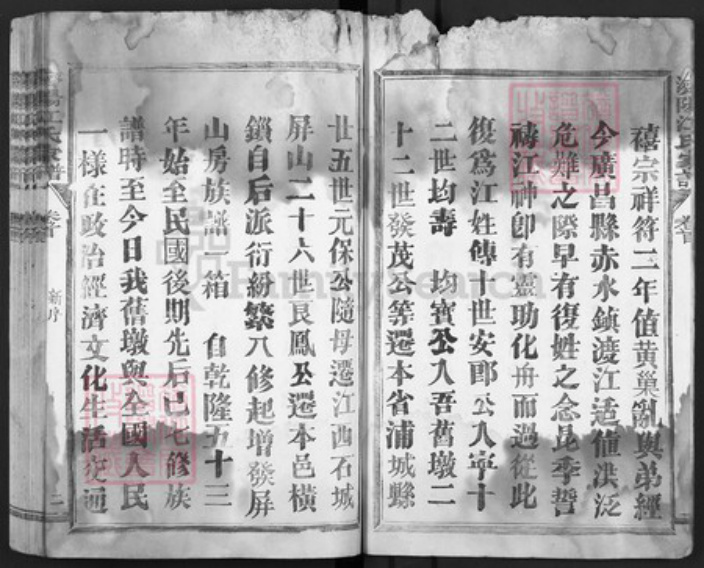 禧宗祥符三年值黄巢亂與弟經
今廣昌縣赤水鎮渡江适值洪泛
危難之際早有復姓之念昆季誓
禱江神卽有靈助化舟而過從此
復爲江姓傳十世安郎公入寧十
二世均壽 均寳公入吾舊墩二
十二世發茂公等遷本省浦城縣
廿五世元保公隨母遷江西石城
屏山二十六世良鳳公遷本邑橫
鎖自后派衍紛繁八修起增發屏
山房族譜一箱 自乾隆五十三
年始全民國後期先后已七修族
譜時至今日我舊墩與全國人民
一樣在政治經濟文化生活交通
江氏
卷首
新序
二